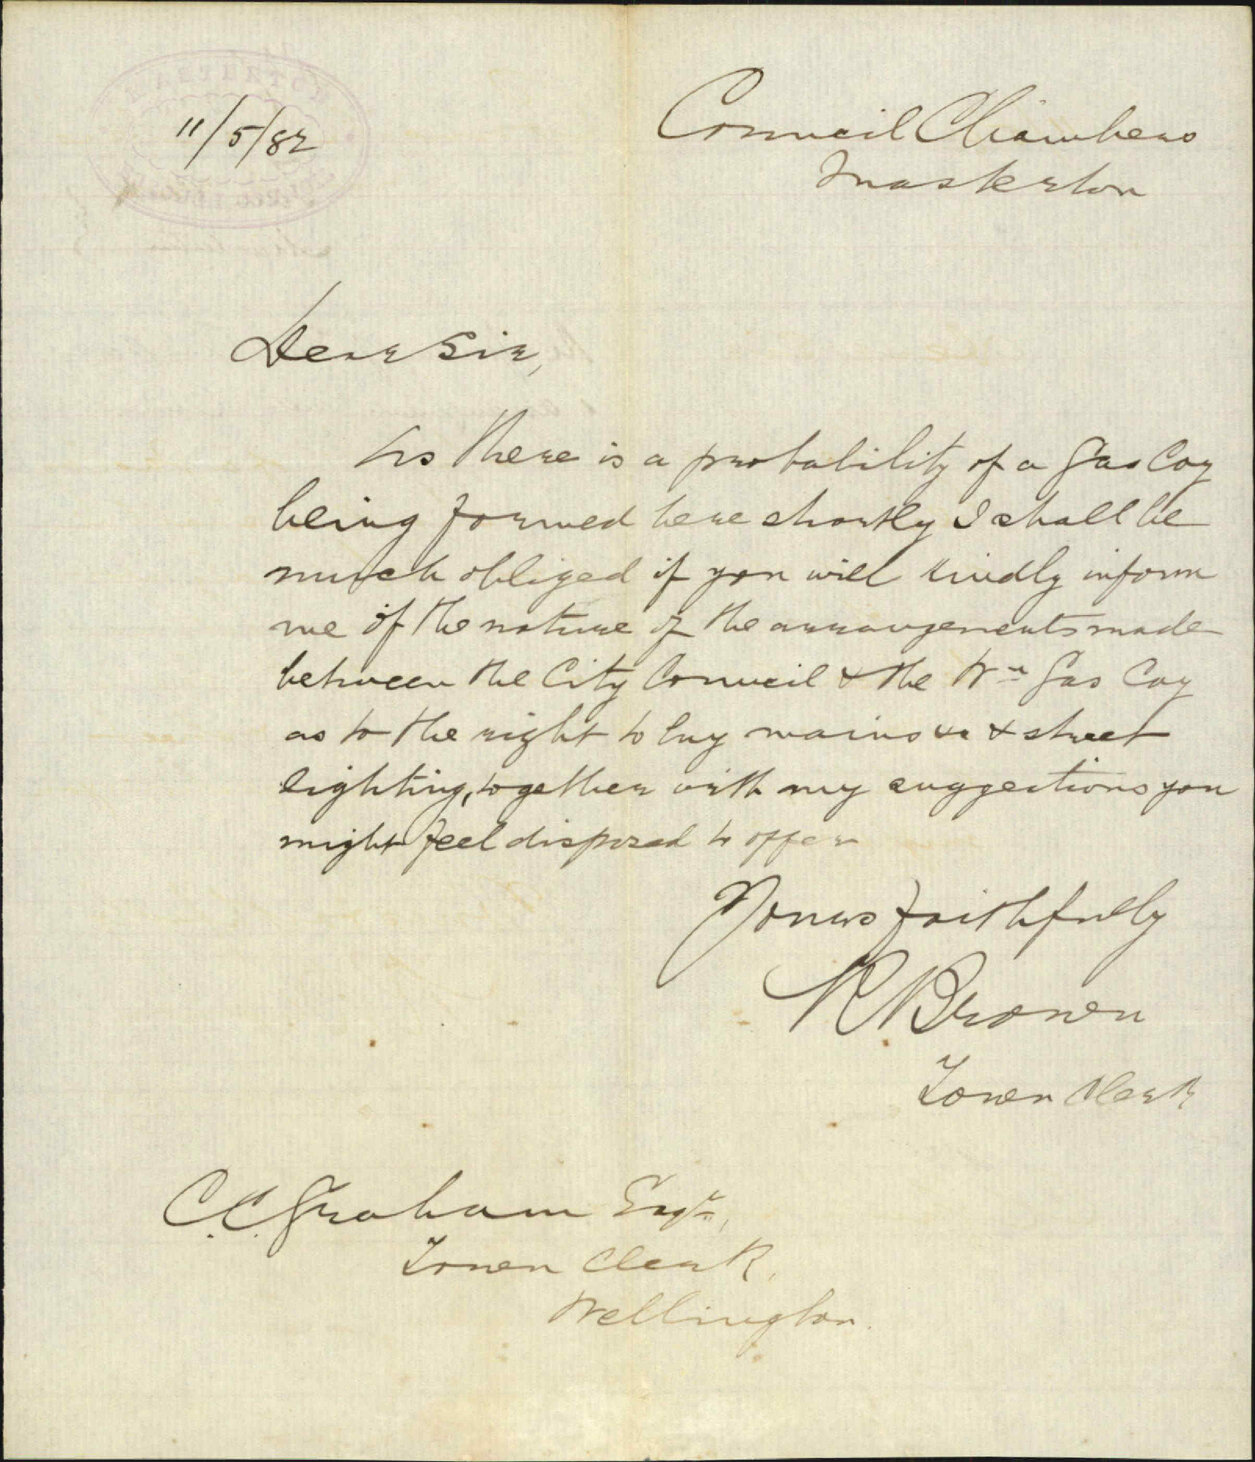 11/5/82
Council Chambers
Masterton
Dear Sir,
As there is a probability of a Gas Coy
being formed here shortly I shall be
much obliged if you will kindly inform
me of the nature of the arrangements made
between the City Council & the Wn Gas Coy
as to the right to lay mains &c & street
lighting, together with any suggestions you
might feel disposed to offer
Yours faithfully
R. Brown
Town Clerk
C.C. Graham Esqr,
Town Clerk,
Wellington.